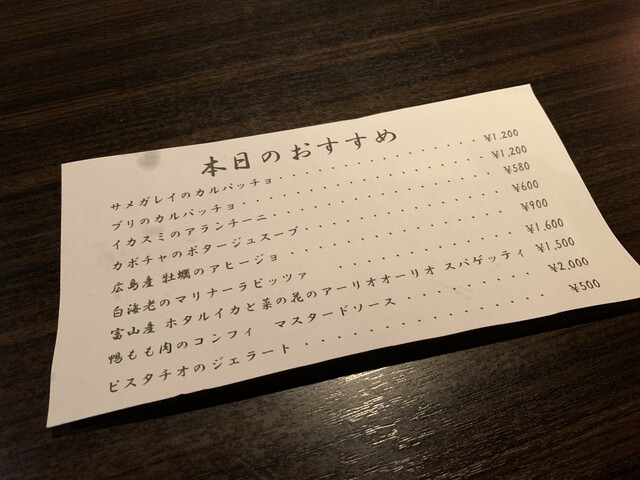 本日のおすすめ
サメガレイのカルパッチョ・・・・・・・・・・・・・・・¥1,200
ブリのカルパッチョ・・・・・・・・・・・・・・・・・・¥1,200
イカスミのアランチーニ・・・・・・・・・・・・・・・・¥580
カボチャのポタージュスープ・・・・・・・・・・・・・・¥600
広島産 牡蠣のアヒージョ・・・・・・・・・・・・・・・¥900
白海老のマリナーラピッツァ ・・・・・・・・・・・・¥1,600
富山産 ホタルイカと菜の花のアーリオオーリオ スパゲッティ ¥1,500
鴨もも肉のコンフィ マスタードソース・・・・・・・・¥2,000
ピスタチオのジェラート・・・・・・・・・・・・・・・・¥500